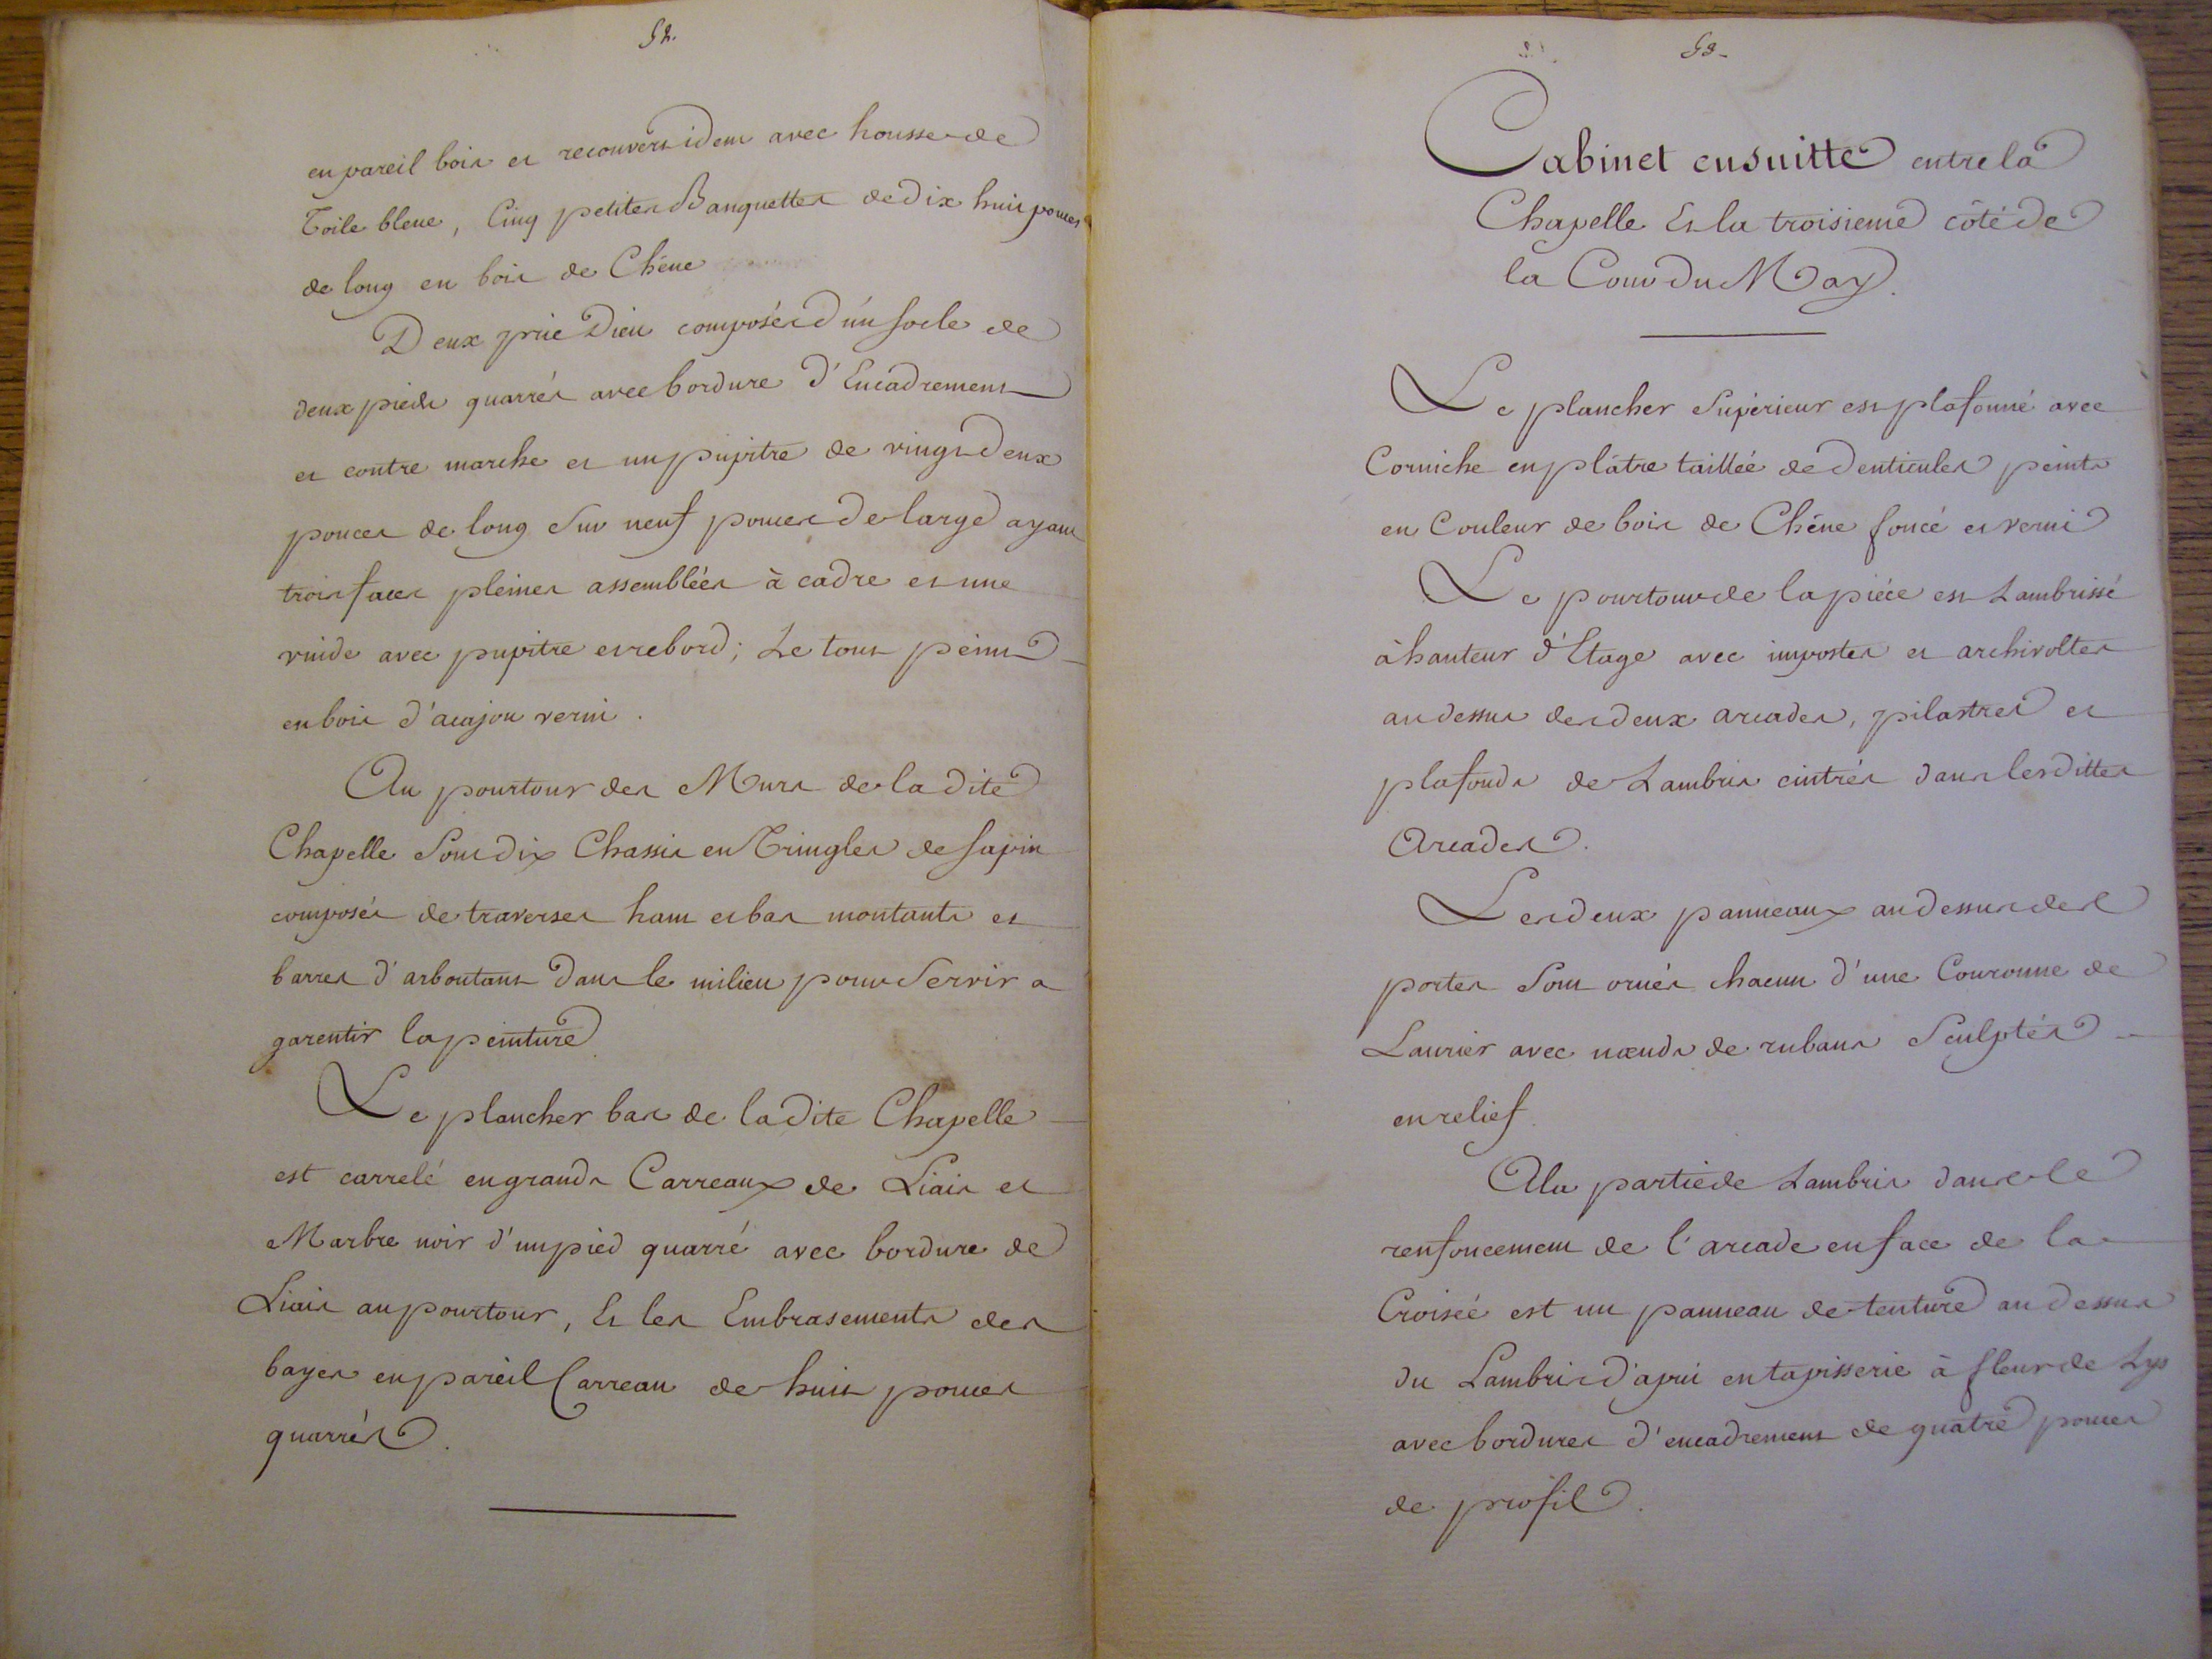 52.
en pareil bois et recouvert idem avec housse de
Toile bleue, Cinq petites Banquettes de dix huit pouces
de long en bois de Chêne
Deux prie Dieu composés d'un socle de
deux pieds quarrés avec bordure d'Encadrement
et contre marche et un pupitre de vingt deux
pouces de long Sur neuf pouces de large ayant
trois faces pleines assemblées à cadre et une
vuide avec pupitre et rebord; Le tout peint
en bois d'acajou verni.
Au pourtour des Murs de la dite
Chapelle Sont dix Chassis en Tringles de sapin
composés de traverses haut et bas montants et
barres d'arboutant dans le milieu pour Servir a
garentir la peinture
Le plancher bas de la dite Chapelle
est carrelé en grands Carreaux de Liais et
Marbre noir d'un pied quarré avec bordure de
Liais au pourtour, Et les Embrasements des
bayes en pareil Carreau de huit pouces
quarrés.
53.
Cabinet ensuitte entre la
Chapelle Et la troisieme côté de
la Cour du May.
Le plancher Supérieur est plafonné avec
Corniche en plâtre taillée de denticules peints
en Couleur de bois de Chêne foncé et verni
Le pourtour de la piéce est Lambrissé
à hauteur d'Etage avec impostes et archivoltes
au dessus des deux arcades, pilastres et
plafonds de Lambris cintrés dans les dittes
Arcades.
Les deux panneaux au dessus des
portes Sont ornés chacun d'une Couronne de
Laurier avec nœuds de rubans Sculptés
en relief.
A la partie de Lambris dans le
renfoncement de l'arcade en face de la
Croisée est un panneau de tenture au dessus
du Lambris d'apui en tapisserie à fleur de Lys
avec bordures d'encadrement de quatre pouces
de profil.